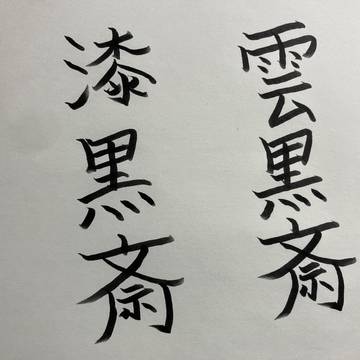 雲黒斎
漆黒斎